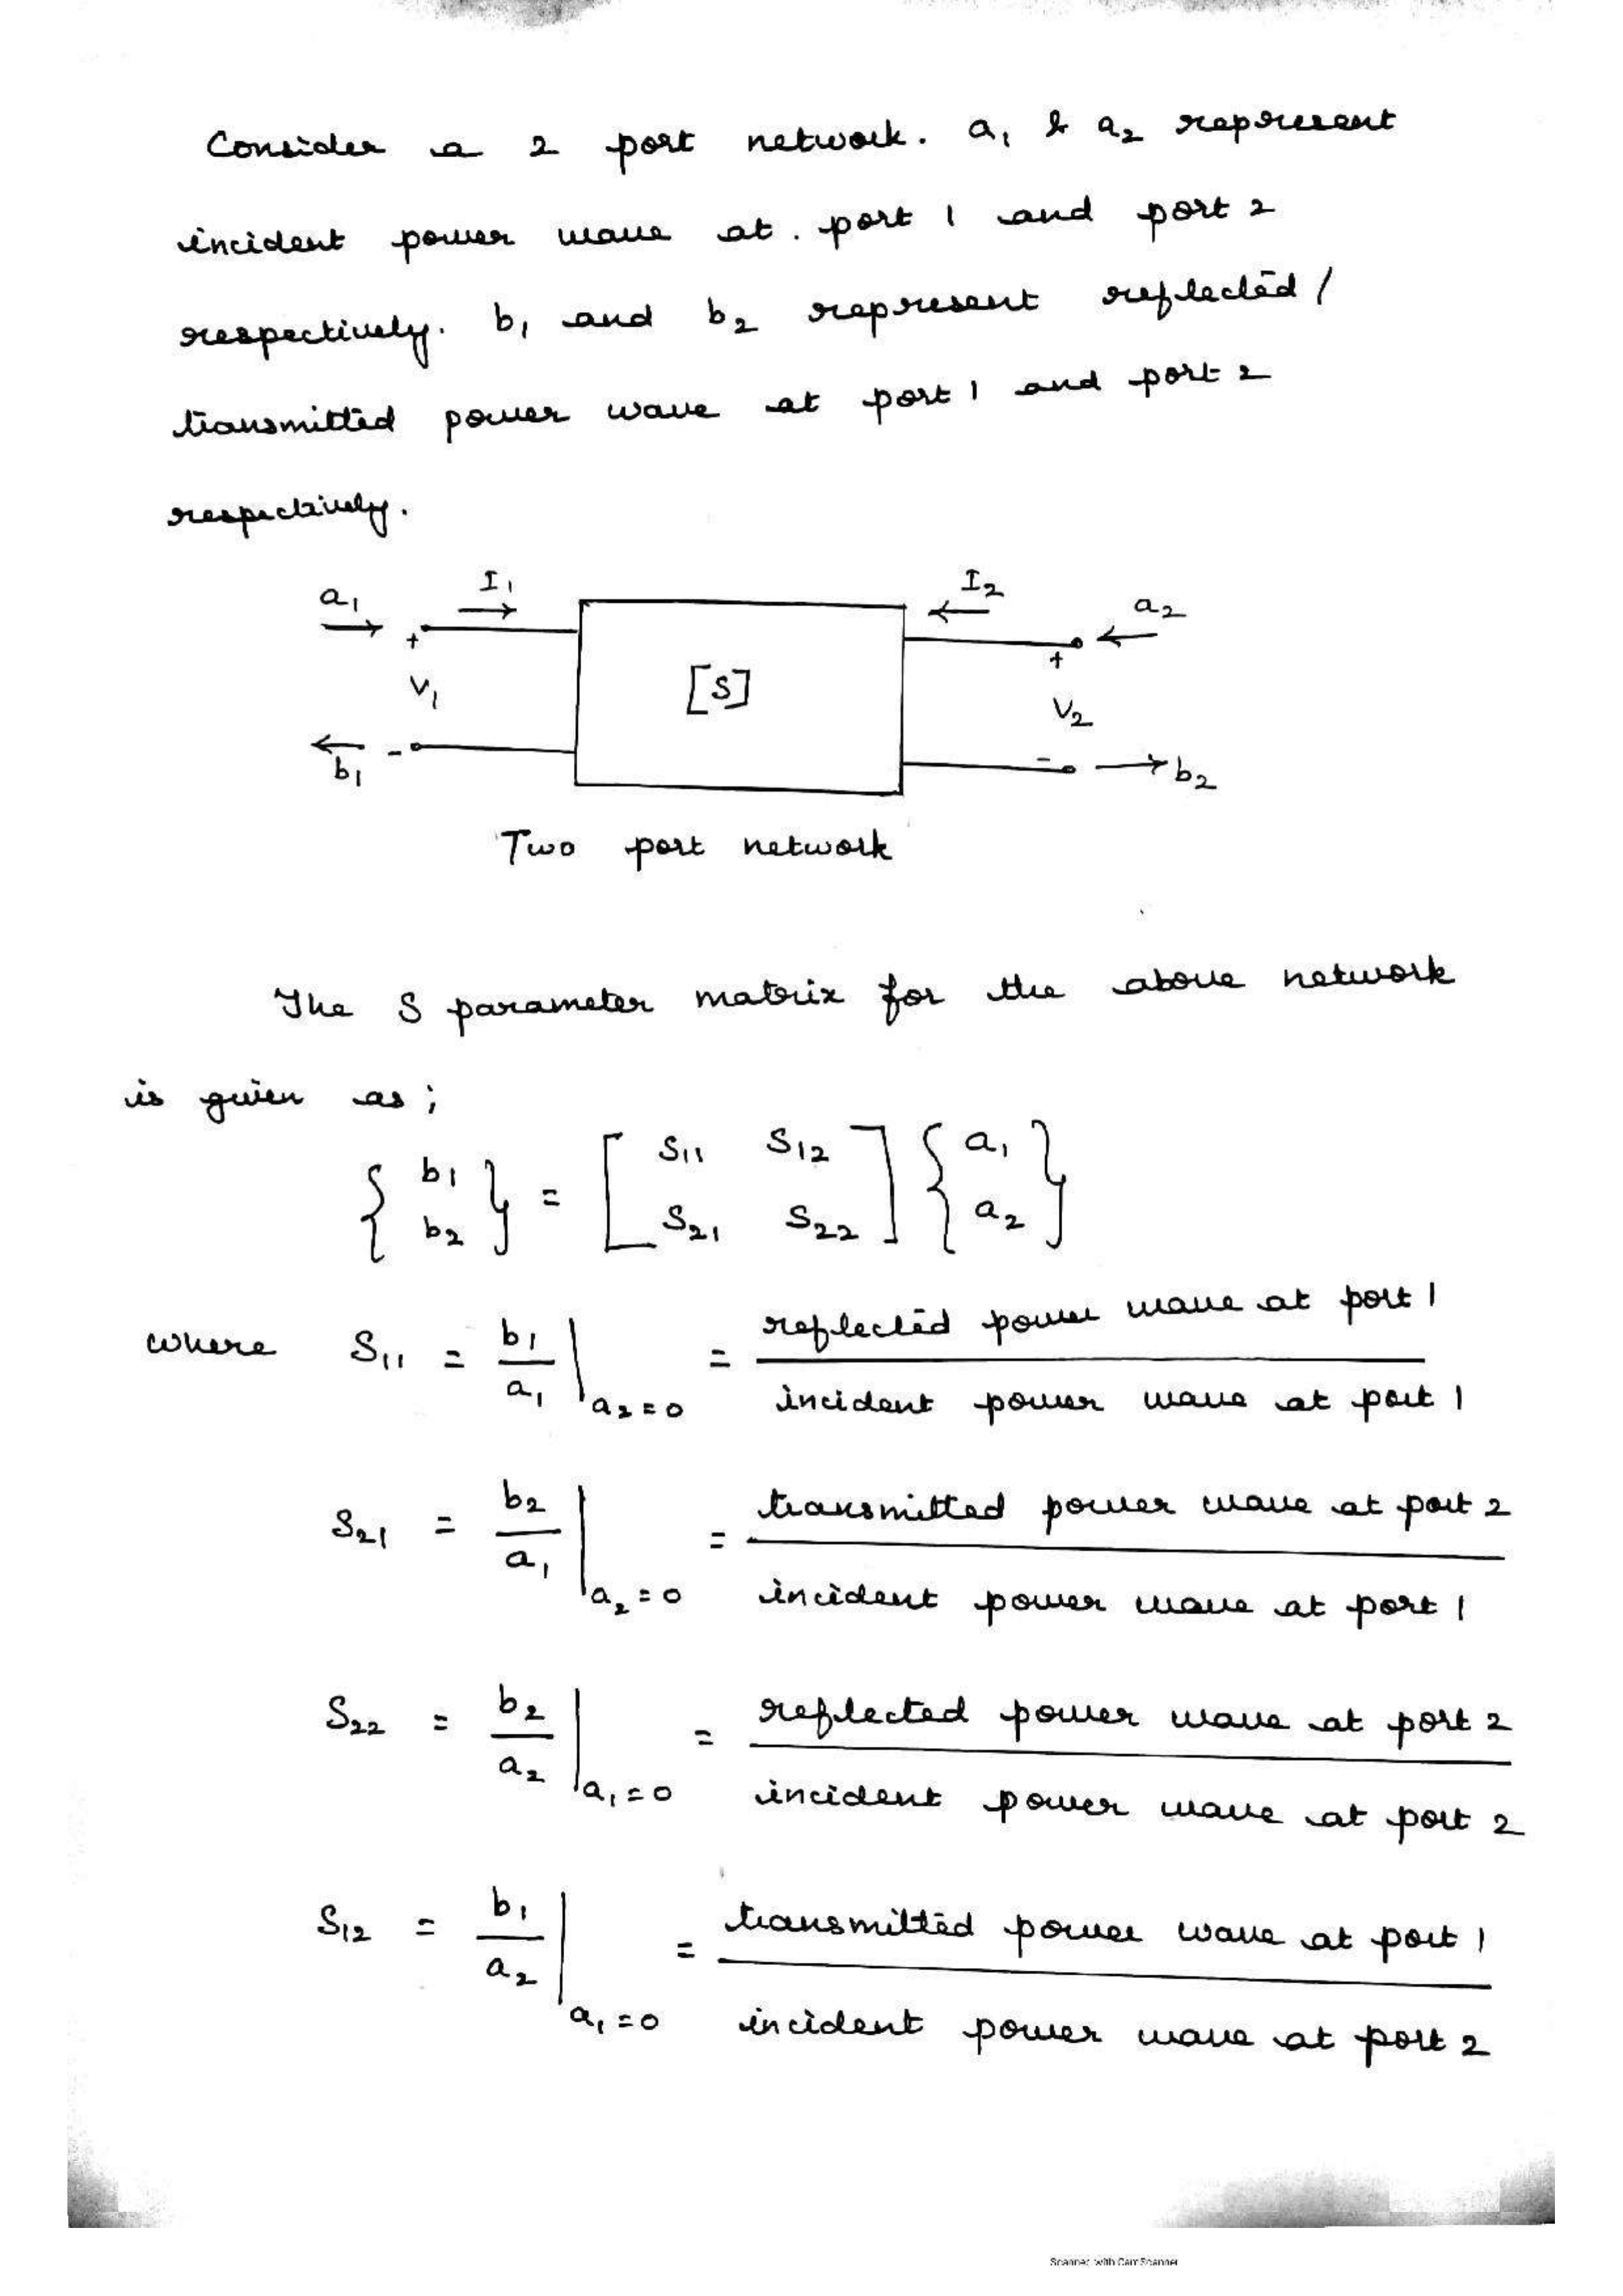 Consider a 2 port network. a₁ & a₂ represent
incident power wave at. port 1 and port 2
respectively. b₁ and b₂ represent reflected /
transmitted power wave at port 1 and port 2
respectively.
a₁ I₁ I₂ a₂
+ +
V₁ [S] V₂
b₁ - - b₂
Two port network
The S parameter matrix for the above network
is given as ;
{ b₁ } = [ S₁₁ S₁₂ ] { a₁ }
{ b₂ } [ S₂₁ S₂₂ ] { a₂ }
where S₁₁ = b₁/a₁ |a₂=0 = reflected power wave at port 1
incident power wave at port 1
S₂₁ = b₂/a₁ |a₂=0 = transmitted power wave at port 2
incident power wave at port 1
S₂₂ = b₂/a₂ |a₁=0 = reflected power wave at port 2
incident power wave at port 2
S₁₂ = b₁/a₂ |a₁=0 = transmitted power wave at port 1
incident power wave at port 2
Scanned with CamScanner